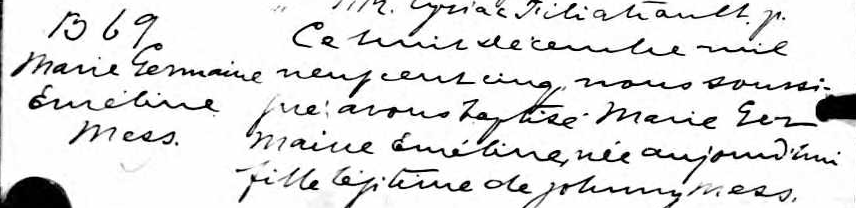 " M. Cyriac Filiatrault. p.
B 69
Marie Germaine
Éméline
Mess.
Ce huit décembre mil
neuf cent cinq, nous soussi-
gné avons baptisé Marie Ger
maine Éméline, née aujourd'hui
fille légitime de Johnny Mess.